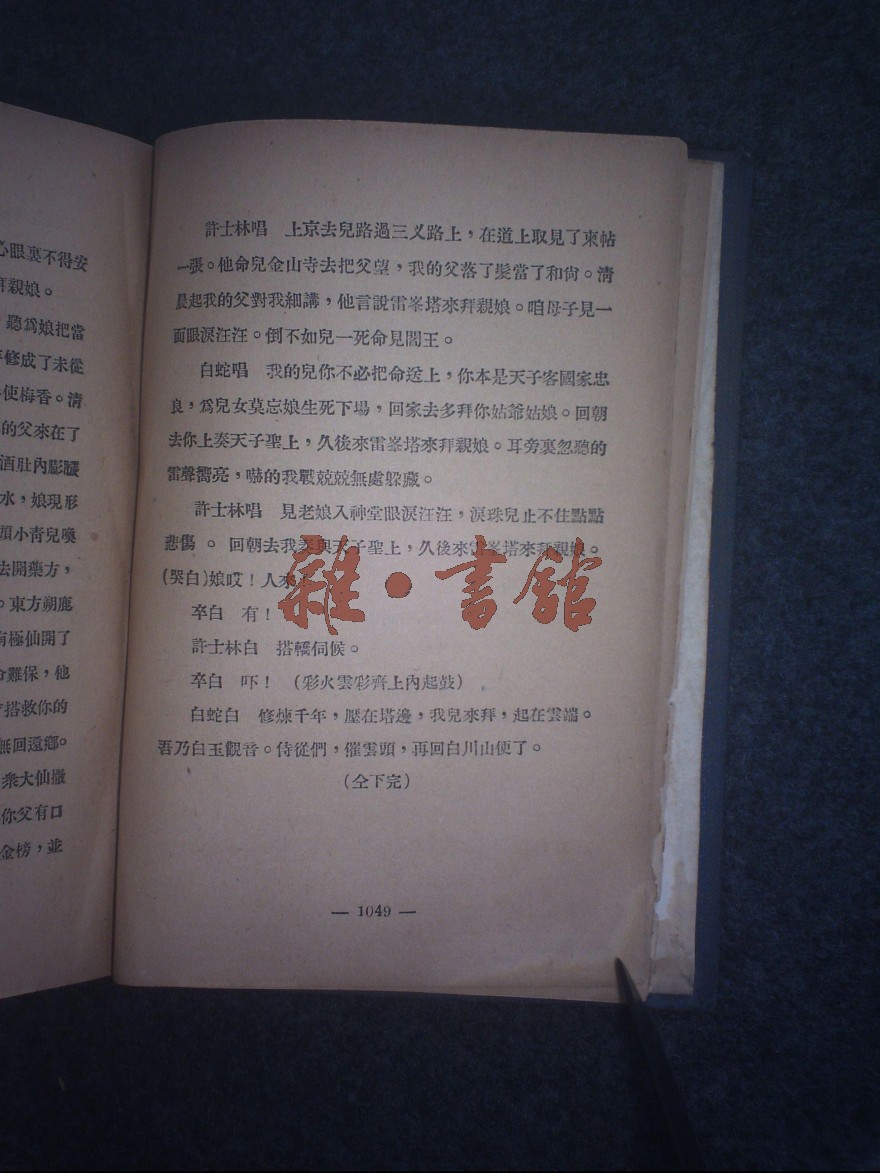 心眼裏不得安
拜親娘。
聽爲娘把當
修成了未從
使梅香。清
的父來在了
酒肚內膨膨
水，娘現形
頭小靑兒喚
去開藥方，
。東方朔鹿
南極仙開了
命難保，他
搭救你的
無回還鄉。
衆大仙撒
你父有口
金榜，並
許士林唱　上京去兒路過三义路上，在道上取見了柬帖
一張。他命兒金山寺去把父望，我的父落了髮當了和尙。淸
晨起我的父對我細講，他言說雷峯塔來拜親娘。咱母子見一
面眼淚汪汪。倒不如兒一死命見閻王。
白蛇唱　我的兒你不必把命送上，你本是天子客國家忠
良，爲兒女莫忘娘生死下場，回家去多拜你姑爺姑娘。回朝
去你上奏天子聖上，久後來雷峯塔來拜親娘。耳旁裏忽聽的
雷聲嚮亮，嚇的我戰兢兢無處躱藏。
許士林唱　見老娘入神堂眼淚汪汪，淚珠兒止不住點點
悲傷。回朝去我奏與天子聖上，久後來雷峯塔來拜親娘。
(哭白)娘哎！人來！
卒白　有！
許士林白　搭轎伺候。
卒白　吓！（彩火雲彩齊上內起鼓）
白蛇白　修煉千年，壓在塔邊，我兒來拜，起在雲端。
吾乃白玉觀音。侍從們，催雲頭，再回白川山便了。
（仝下完）
— 1049 —
雜·書館